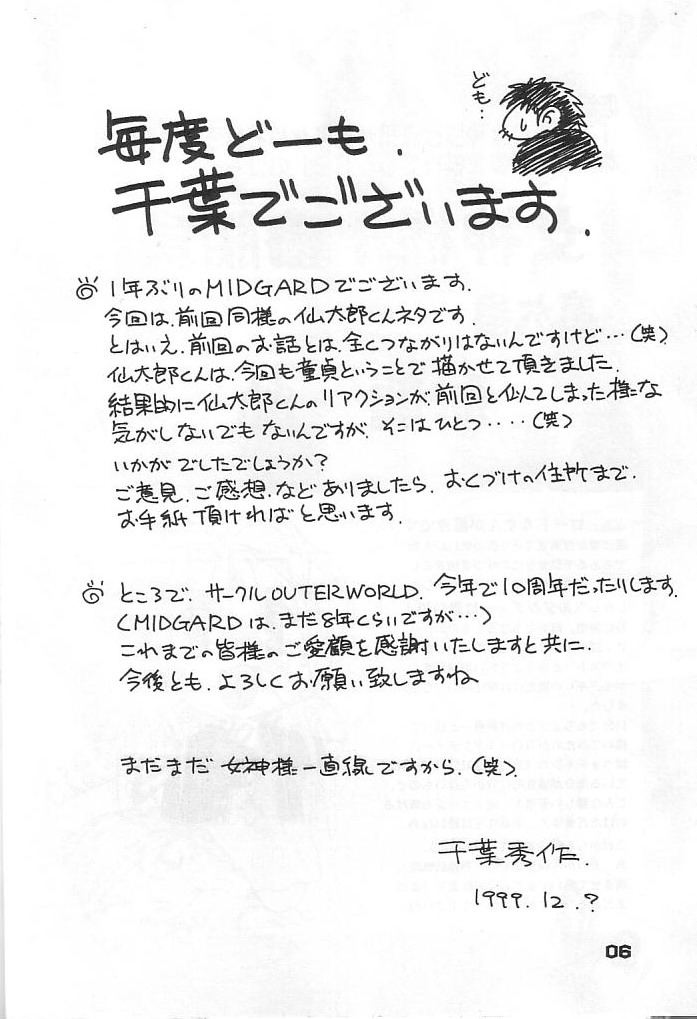 ども・・
毎度どーも.
千葉でございます.
1年ぶりのMIDGARDでございます.
今回は、前回同様の仙太郎くんネタです.
とはいえ、前回のお話とは、全くつながりはないんですけど・・・(笑)
仙太郎くんは、今回も童貞ということで描かせて頂きました.
結果的に仙太郎くんのリアクションが、前回と似てしまった様な
気がしないでもないんですが、そこはひとつ・・・・(笑)
いかがでしたでしょうか?
ご意見、ご感想、などありましたら、おくづけの住所まで、
お手紙頂ければと思います.
ところで、サークルOUTERWORLD、今年で10周年だったりします.
(MIDGARDは、まだ8年くらいですが・・・)
これまでの皆様のご愛顧を感謝いたしますと共に、
今後とも、よろしくお願い致しますね
まだまだ女神様一直線ですから、(笑)、
千葉秀作.
1999.12.?
06